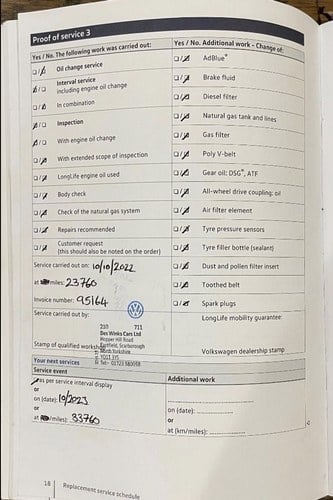 Proof of service 3
Yes / No. The following work was carried out:
Oil change service
Interval service
including engine oil change
In combination
Inspection
With engine oil change
With extended scope of inspection
LongLife engine oil used
Body check
Check of the natural gas system
Repairs recommended
Customer request
(this should also be noted on the order)
Service carried out on: 10/10/2022
at km/miles: 23760
Invoice number: 95164
Service carried out by:
210 711
Des Winks Cars Ltd
Hopper Hill Road
Eastfield, Scarborough
North Yorkshire
YO11 3YS
Stamp of qualified workshop
Yes / No. Additional work – Change of:
AdBlue®
Brake fluid
Diesel filter
Natural gas tank and lines
Gas filter
Poly V-belt
Gear oil: DSG®, ATF
All-wheel drive coupling: oil
Air filter element
Tyre pressure sensors
Tyre filler bottle (sealant)
Dust and pollen filter insert
Toothed belt
Spark plugs
LongLife mobility guarantee:
Volkswagen dealership stamp
Your next services
Service event
as per service interval display
or
on (date): 10/2023
or
at km/miles): 33760
Additional work
on (date):
or
at (km/miles):
18 Replacement service schedule